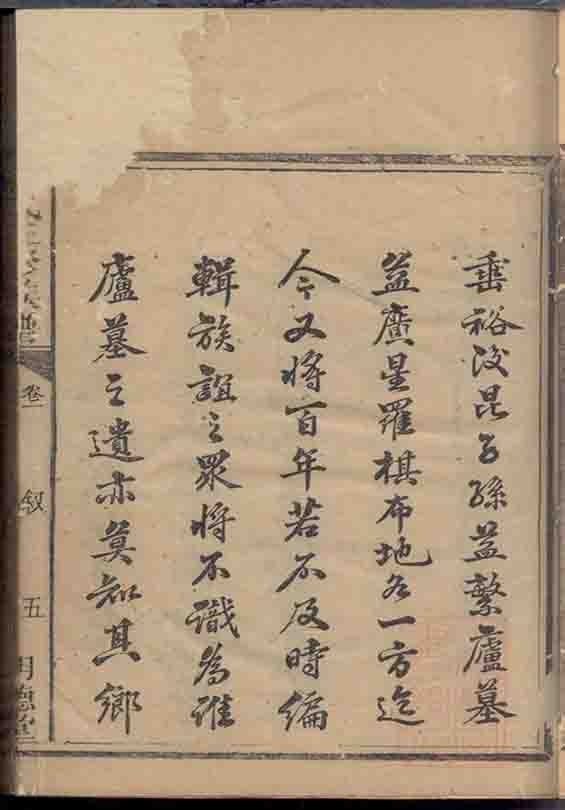 垂裕後昆子孫益繁廬墓
益廣星羅棋布地各一方迄
今又將百年若不及時編
輯族誼之眾將不識為誰
廬墓之遺亦莫知其鄉
卷一
叙
五
明德堂